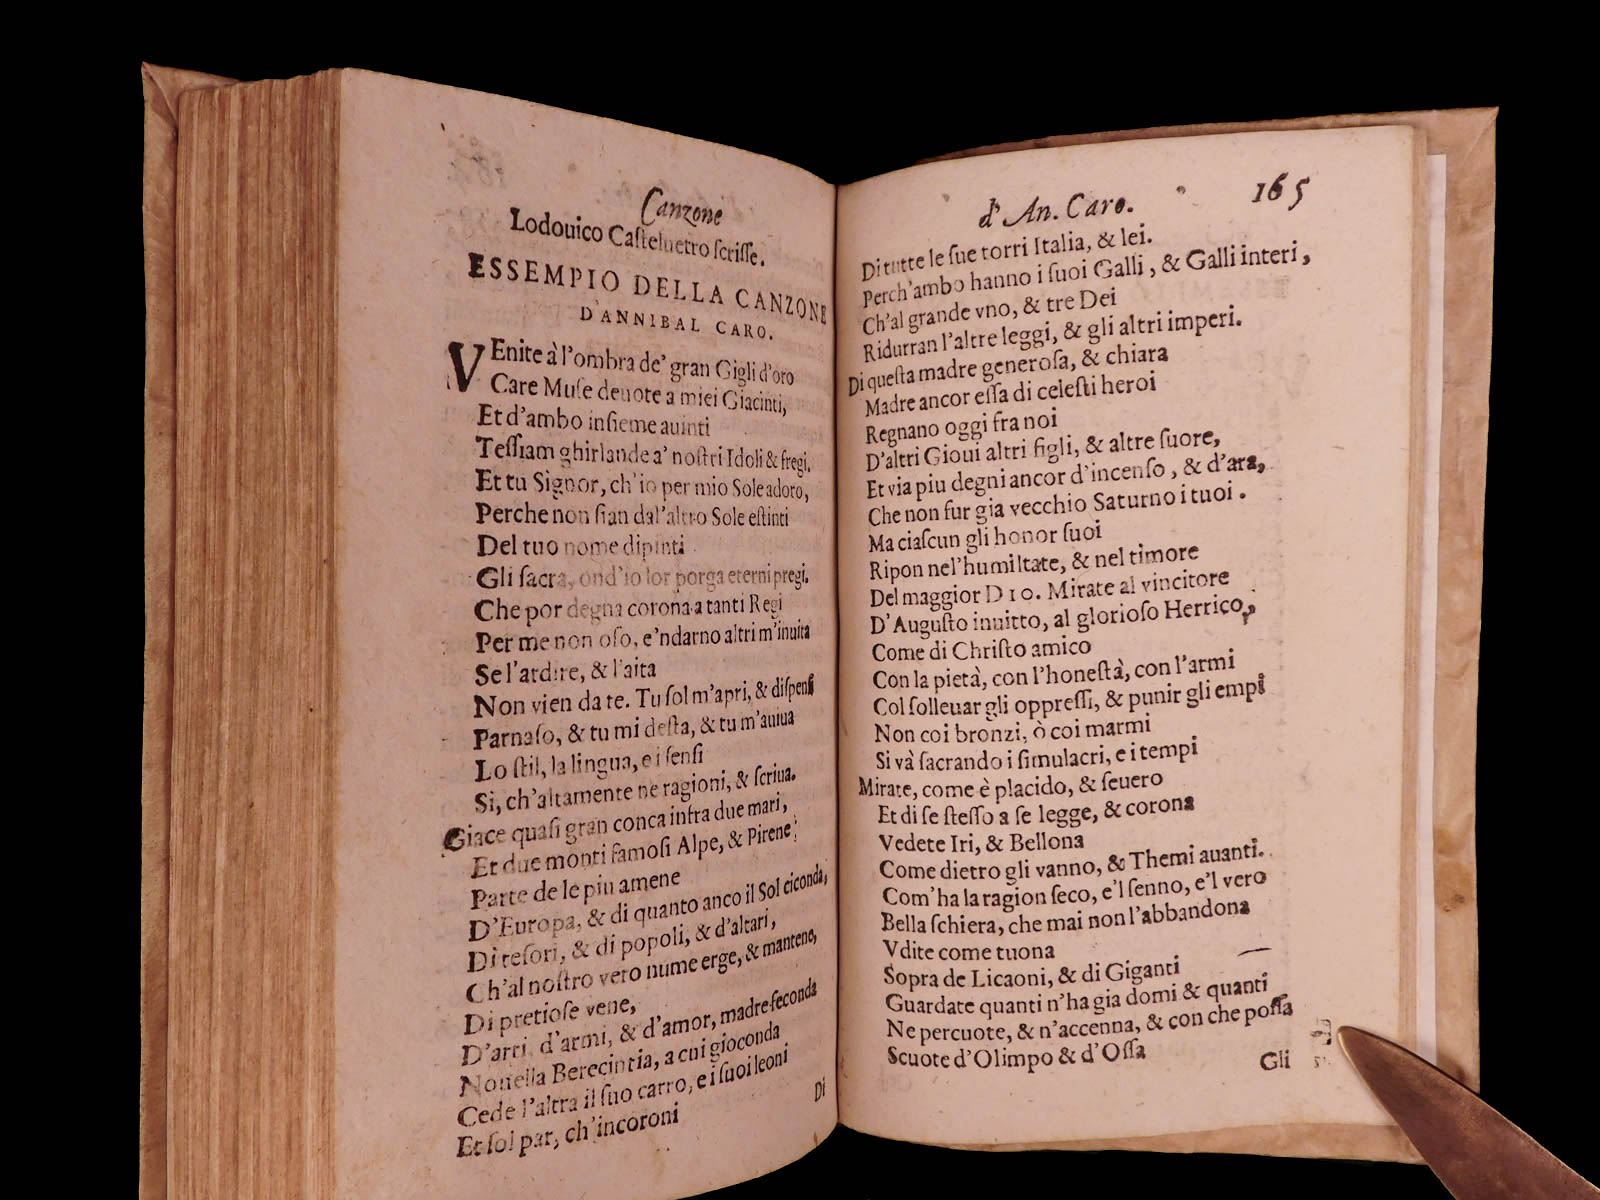 Canzone
Lodouico Casteluetro scrisse.
ESSEMPIO DELLA CANZONE
D'ANNIBAL CARO.
VEnite à l'ombra de' gran Gigli d'oro
Care Muse deuote a miei Giacinti,
Et d'ambo insieme auinti
Tessiam ghirlande a' nostri Idoli & fregi.
Et tu Signor, ch'io per mio Sole adoro,
Perche non sian dal'altro Sole estinti
Del tuo nome dipinti
Gli sacra, ond'io lor porga eterni pregi.
Che por degna corona a tanti Regi
Per me non oso, e'ndarno altri m'inuita
Se l'ardire, & l'aita
Non vien da te. Tu sol m'apri, & dispensi
Parnaso, & tu mi desta, & tu m'auiua
Lo stil, la lingua, e i sensi
Si, ch'altamente ne ragioni, & scriua.
Giace quasi gran conca infra due mari,
Et due monti famosi Alpe, & Pirene,
Parte de le piu amene
D'Europa, & di quanto anco il Sol circonda,
Di tesori, & di popoli, & d'altari,
Ch'al nostro vero nume erge, & mantene,
Di pretiose vene,
D'arti, d'armi, & d'amor, madre feconda
Nouella Berecintia, a cui gioconda
Cede l'altra il suo carro, e i suoi leoni
Et sol par, ch'incoroni
Di
d'An. Caro. 165
Di tutte le sue torri Italia, & lei.
Perch'ambo hanno i suoi Galli, & Galli interi,
Ch'al grande vno, & tre Dei
Ridurran l'altre leggi, & gli altri imperi.
Di questa madre generosa, & chiara
Madre ancor essa di celesti heroi
Regnano oggi fra noi
D'altri Gioui altri figli, & altre suore,
Et via piu degni ancor d'incenso, & d'ara,
Che non fur gia vecchio Saturno i tuoi.
Ma ciascun gli honor suoi
Ripon nel'humiltate, & nel timore
Del maggior DIO. Mirate al vincitore
D'Augusto inuitto, al glorioso Herrico,
Come di Christo amico
Con la pietà, con l'honestà, con l'armi
Col solleuar gli oppressi, & punir gli empi
Non coi bronzi, ò coi marmi
Si và sacrando i simulacri, e i tempi
Mirate, come è placido, & seuero
Et di se stesso a se legge, & corona
Vedete Iri, & Bellona
Come dietro gli vanno, & Themi auanti.
Com'ha la ragion seco, e'l senno, e'l vero
Bella schiera, che mai non l'abbandona
Vdite come tuona
Sopra de Licaoni, & di Giganti
Guardate quanti n'ha gia domi & quanti
Ne percuote, & n'accenna, & con che possa
Scuote d'Olimpo & d'Ossa
Gli